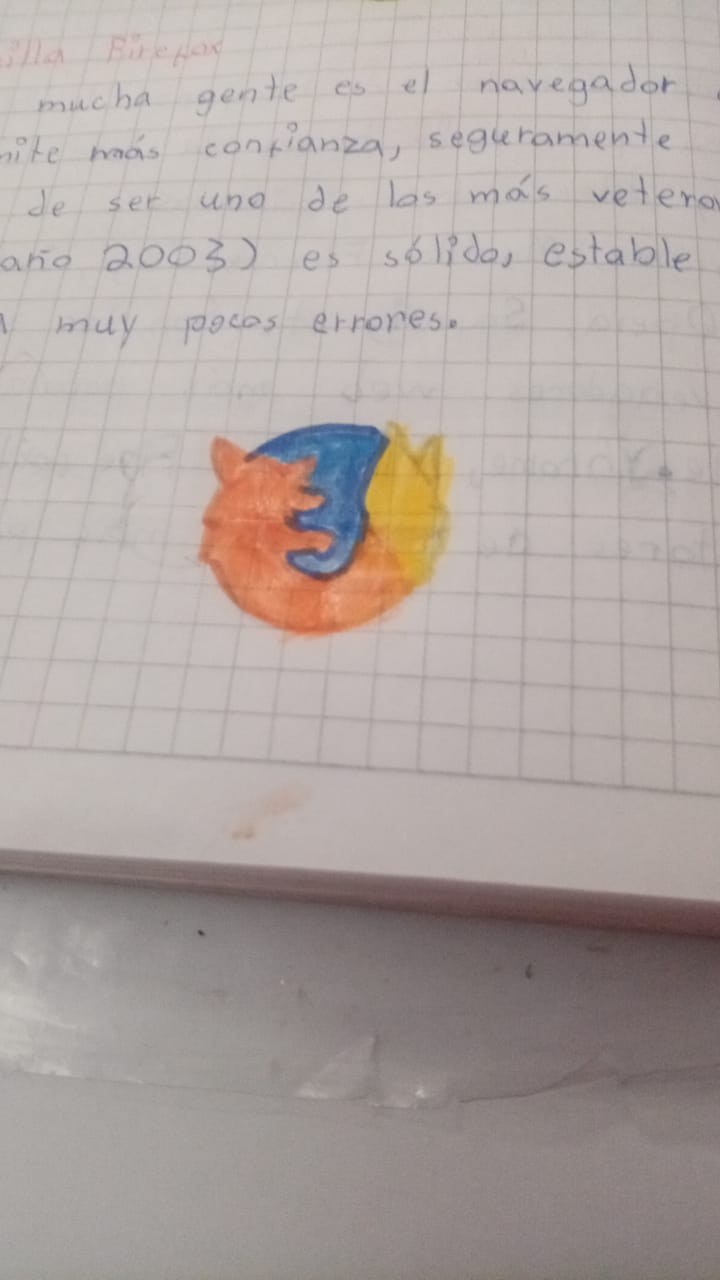 illa Firefox
mucha gente es el navegador
mite más confianza, seguramente
de ser uno de los más vetera
año 2003) es sólido, estable
muy pocos errores.